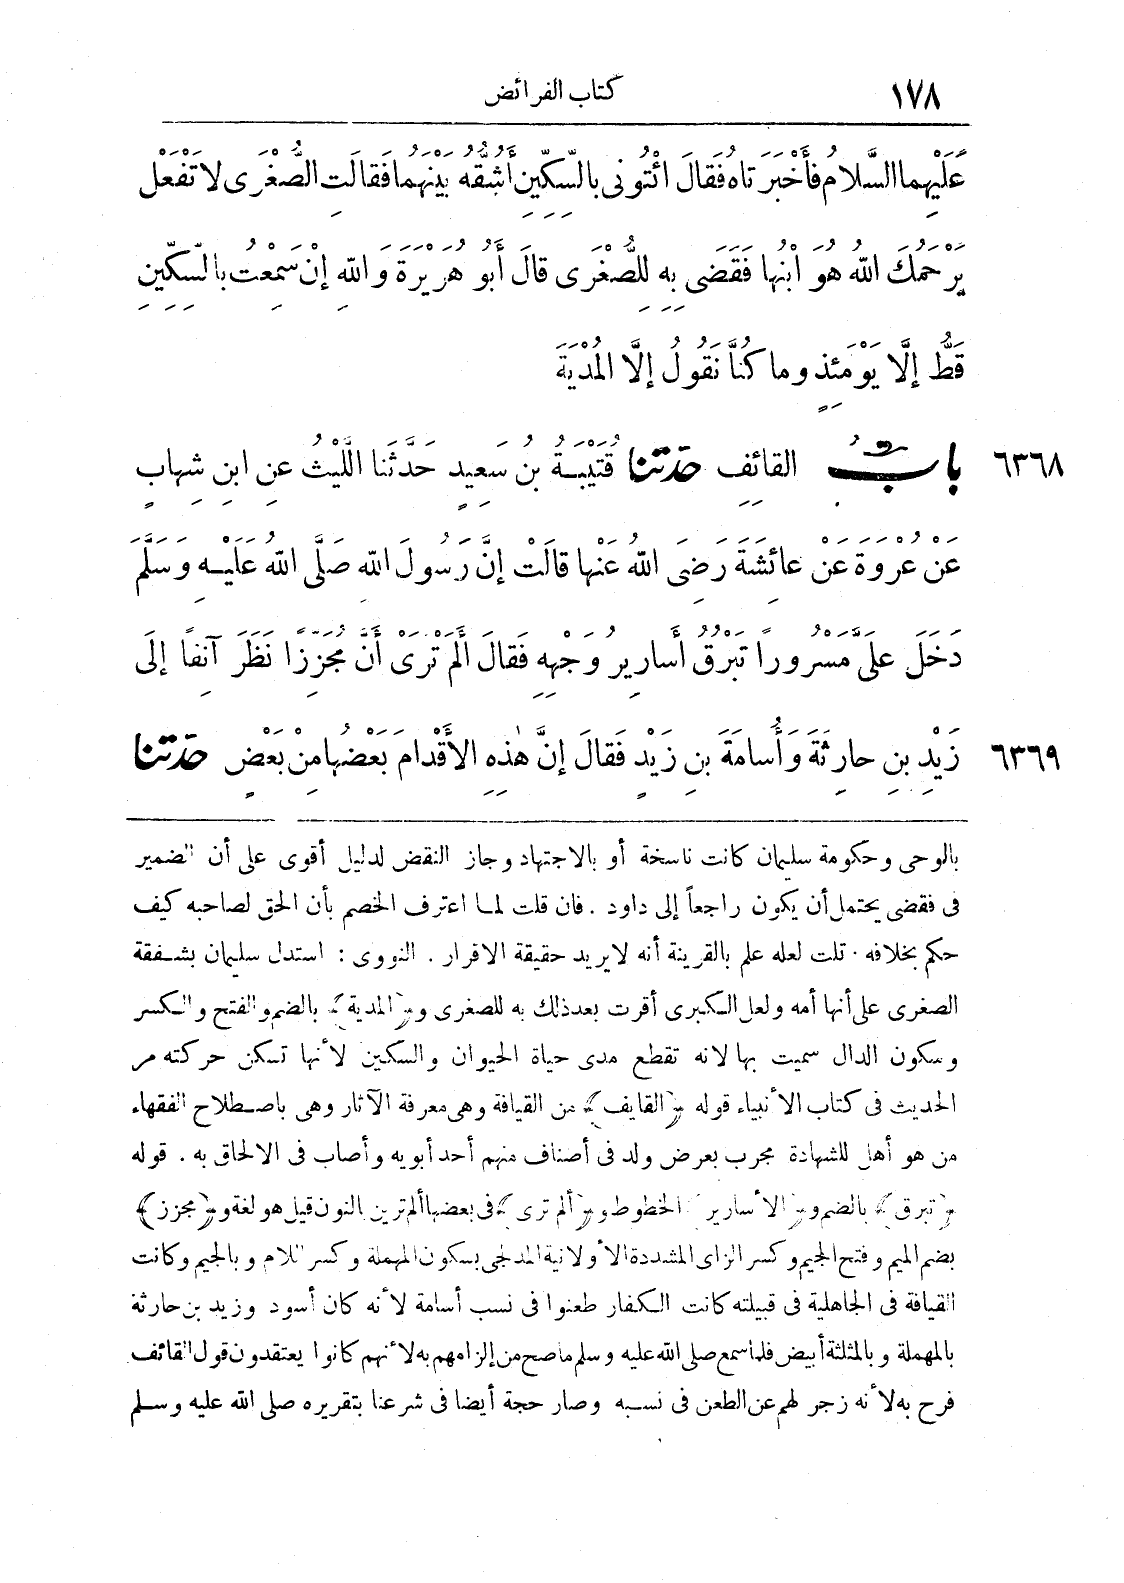 ١٧٨ كتاب الفرائض
عَلَيْهِما السَّلَامُ فَأَخْبَرَتاهُ فَقالَ ائْتُونِى بِالسِّكِّينِ أَشُقُّهُ بَيْنَهُما فَقالَتِ الصُّغْرَى لا تَفْعَلْ
يَرْحَمُكَ اللَّهُ هُوَ ابْنُها فَقَضَى بِهِ لِلصُّغْرَى قالَ أَبُو هُرَيْرَةَ وَاللَّهِ إِنْ سَمِعْتُ بِالسِّكِّينِ
قَطُّ إِلَّا يَوْمَئِذٍ وما كُنَّا نَقُولُ إِلَّا المُدْيَةَ
٦٣٦٨ بابُ القائِفِ حدثنا قُتَيْبَةُ بنُ سَعِيدٍ حَدَّثَنا اللَّيْثُ عَنِ ابنِ شِهابٍ
عَنْ عُرْوَةَ عَنْ عائِشَةَ رَضِىَ اللهُ عَنْها قالَتْ إِنَّ رَسُولَ اللهِ صَلَّى اللهُ عَلَيْهِ وَسَلَّمَ
دَخَلَ عَلَىَّ مَسْرُوراً تَبْرُقُ أَسارِيرُ وَجْهِهِ فَقالَ أَلَمْ تَرَىْ أَنَّ مُجَزِّزًا نَظَرَ آنِفًا إِلَى
٦٣٦٩ زَيْدِ بنِ حارِثَةَ وَأُسامَةَ بنِ زَيْدٍ فَقالَ إِنَّ هٰذِهِ الأَقْدامَ بَعْضُها مِنْ بَعْضٍ حدثنا
بالوحى وحكومة سليمان كانت ناسخة أو بالاجتهاد وجاز النقض لدليل أقوى على أن الضمير
فى فقضى يحتمل أن يكون راجعاً إلى داود . فان قلت لما اعترف الخصم بأن الحق لصاحبه كيف
حكم بخلافه . قلت لعله علم بالقرينة أنه لا يريد حقيقة الاقرار . النووى : استدل سليمان بشفقة
الصغرى على أنها أمه ولعل الكبرى أقرت بعد ذلك به للصغرى و﴿المدية﴾ بالضم والفتح والكسر
وسكون الدال سميت بها لانه تقطع مدى حياة الحيوان والسكين لأنها تسكن حركته مر
الحديث فى كتاب الأنبياء قوله ﴿القايف﴾ من القيافة وهى معرفة الآثار وهى باصطلاح الفقهاء
من هو أهل للشهادة مجرب بعرض ولد فى أصناف منهم أحد أبويه وأصاب فى الالحاق به . قوله
﴿تبرق﴾ بالضم و﴿الأسارير﴾ الخطوط و﴿ألم ترى﴾ فى بعضها ألم ترين بالنون قيل هو لغة و﴿مجزز﴾
بضم الميم وفتح الجيم وكسر الزاى المشددة الأولانية المدلجى بسكون المهملة وكسر اللام وبالجيم وكانت
القيافة فى الجاهلية فى قبيلته كانت الكفار طعنوا فى نسب أسامة لأنه كان أسود وزيد بن حارثة
بالمهملة وبالمثلثة أبيض فلما سمع صلى الله عليه وسلم ما صح من إلزامهم به لأنهم كانوا يعتقدون قول القائف
فرح به لأنه زجر لهم عن الطعن فى نسبه وصار حجة أيضا فى شرعنا بتقريره صلى الله عليه وسلم